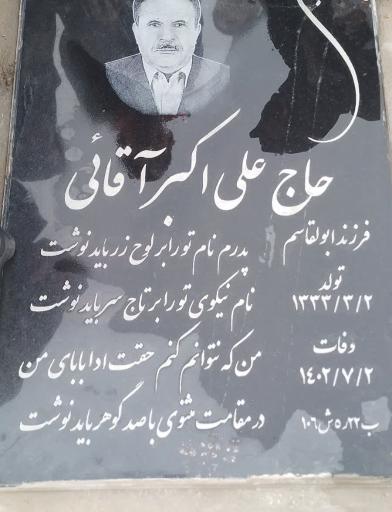 حاج علی اکبر آقائی
فرزند ابولقاسم
تولد
۱۳۳۳/۳/۲
وفات
۱۴۰۲/۷/۲
ب۲۲ره ش۱۰۶
پدرم نام تو را بر لوح زر باید نوشت
نام نیکوی تو را بر تاج سر باید نوشت
من که نتوانم کنم حقت ادا بابای من
در مقامت مثنوی با صد گوهر باید نوشت